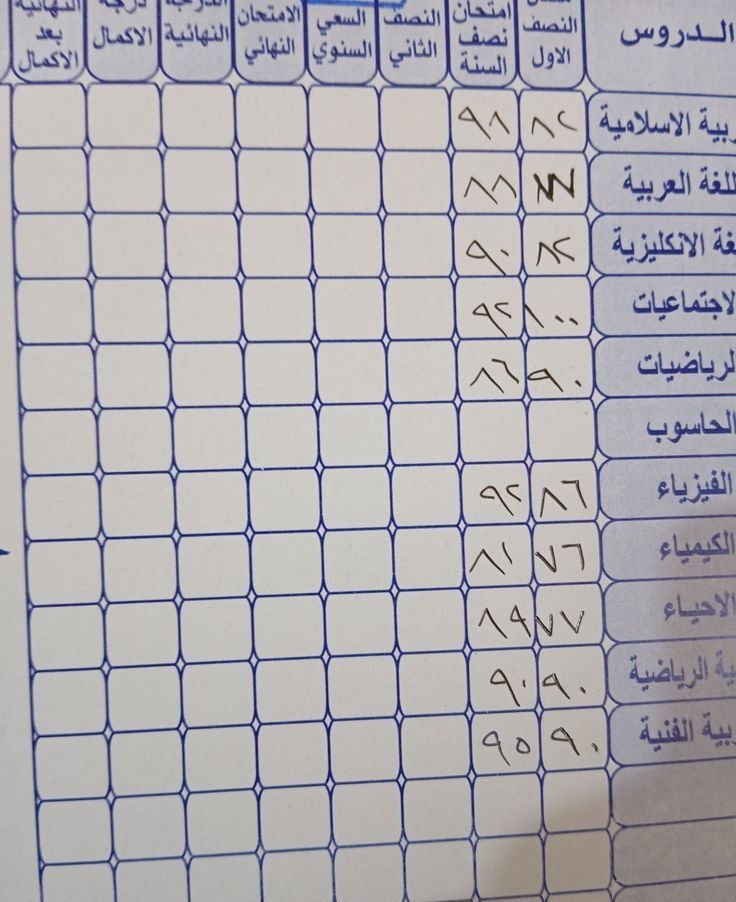 الـدروس النصف الاول امتحان نصف السنة النصف الثاني السعي السنوي الامتحان النهائي الدرجة النهائية درجة الاكمال النهائية بعد الاكمال
ربية الاسلامية ٨٢ ٩٨
للغة العربية ٨٨
غة الانكليزية ٨٢ ٩٠
لاجتماعيات ١٠٠ ٩٢
لرياضيات ٩٠ ٨٦
الحاسوب
الفيزياء ٨٦ ٩٢
الكيمياء ٧٦ ٨١
الاحياء ٧٧ ٨٩
ية الرياضية ٩٠ ٩٠
ربية الفنية ٩٠ ٩٥